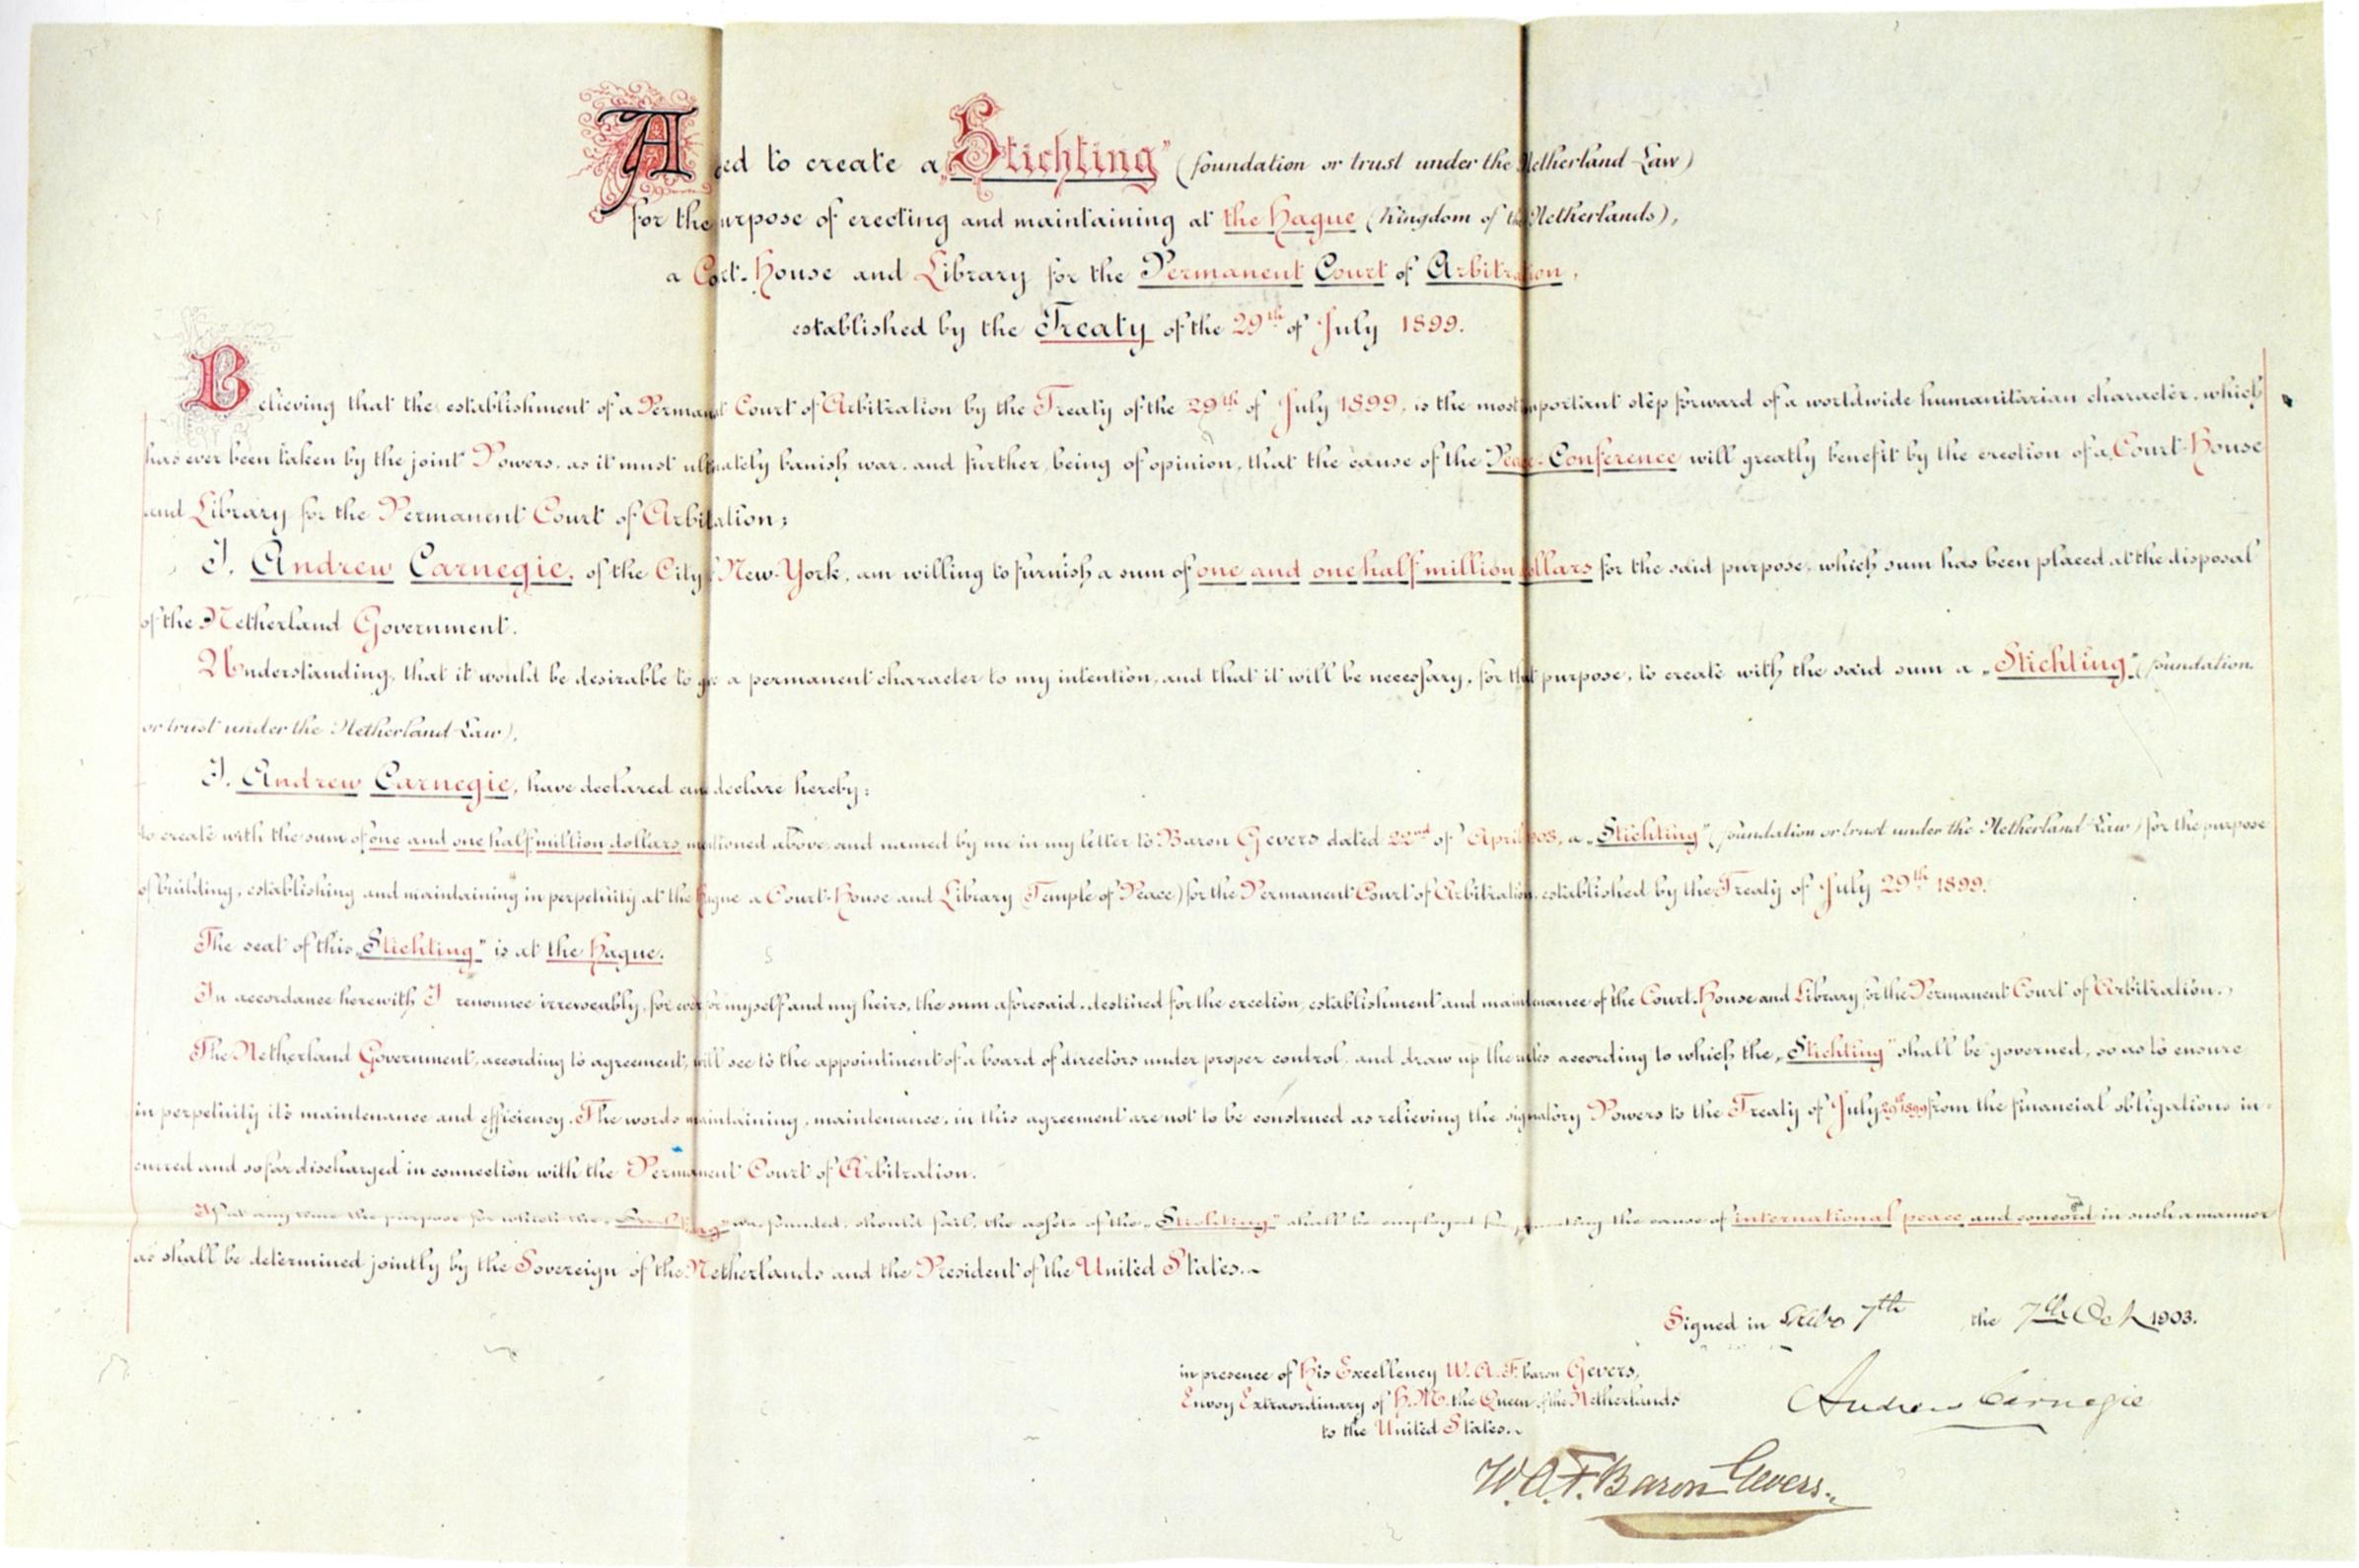 A ed to create a „Stichting" (foundation or trust under the Netherland Law)
for the purpose of erecting and maintaining at the Hague (Kingdom of the Netherlands),
a Court-House and Library for the Permanent Court of Arbitration,
established by the Treaty of the 29th of July 1899.
Believing that the establishment of a Permanent Court of Arbitration by the Treaty of the 29th of July 1899, is the most important step forward of a worldwide humanitarian character, which
has ever been taken by the joint Powers, as it must ultimately banish war, and further, being of opinion, that the cause of the Peace Conference will greatly benefit by the erection of a Court-House
and Library for the Permanent Court of Arbitration;
I, Andrew Carnegie, of the City of New-York, am willing to furnish a sum of one and one half million dollars for the said purpose, which sum has been placed at the disposal
of the Netherland Government.
Understanding, that it would be desirable to give a permanent character to my intention, and that it will be necessary, for that purpose, to create with the said sum a „Stichting" (foundation
or trust under the Netherland Law),
I, Andrew Carnegie, have declared and declare hereby:
to create with the sum of one and one half million dollars mentioned above, and named by me in my letter to Baron Gevers dated 22nd of April 1903, a „Stichting" (foundation or trust under the Netherland Law) for the purpose
of building, establishing and maintaining in perpetuity at the Hague a Court-House and Library (Temple of Peace) for the Permanent Court of Arbitration, established by the Treaty of July 29th 1899.
The seat of this „Stichting" is at the Hague.
In accordance herewith I renounce irrevocably, for ever for myself and my heirs, the sum aforesaid, destined for the erection, establishment and maintenance of the Court-House and Library for the Permanent Court of Arbitration.
The Netherland Government, according to agreement, will see to the appointment of a board of directors under proper control, and draw up the rules according to which the „Stichting" shall be governed, so as to ensure
in perpetuity its maintenance and efficiency. The words maintaining, maintenance, in this agreement are not to be construed as relieving the signatory Powers to the Treaty of July 29th 1899 from the financial obligations in-
curred and so far discharged in connection with the Permanent Court of Arbitration.
If at any time the purpose for which the „Stichting" was founded, should fail, the assets of the „Stichting" shall be employed for promoting the cause of international peace and concord in such a manner
as shall be determined jointly by the Sovereign of the Netherlands and the President of the United States.
Signed in 7th the 7th Oct 1903.
in presence of His Excellency W. A. F. baron Gevers,
Envoy Extraordinary of H. M. the Queen of the Netherlands
to the United States.
Andrew Carnegie
W. A. F. Baron Gevers.